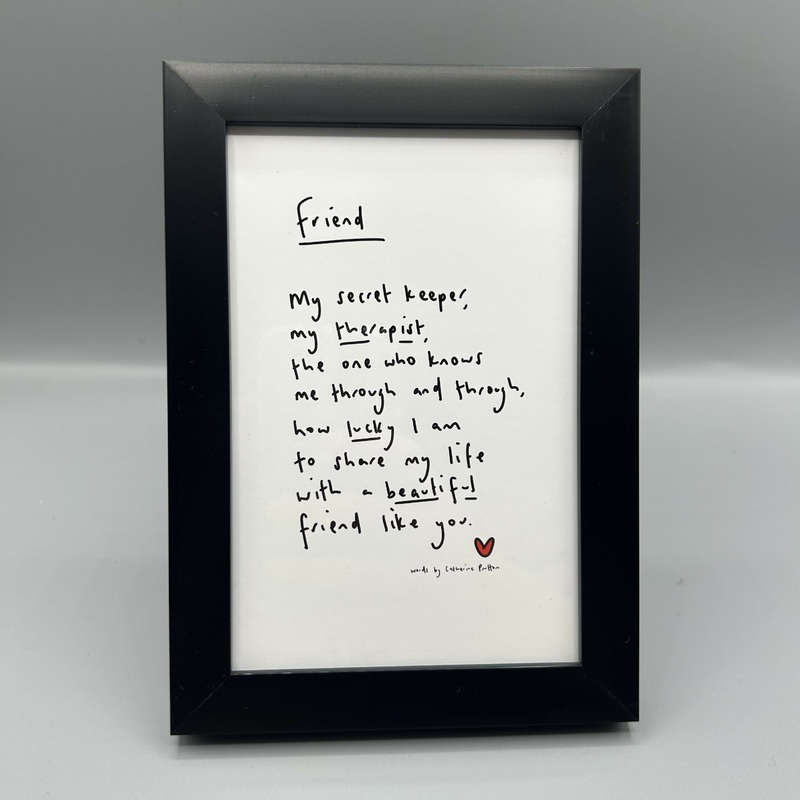 Friend
My secret keeper,
my therapist,
the one who knows
me through and through,
how lucky I am
to share my life
with a beautiful
friend like you.
words by Catherine Prutton